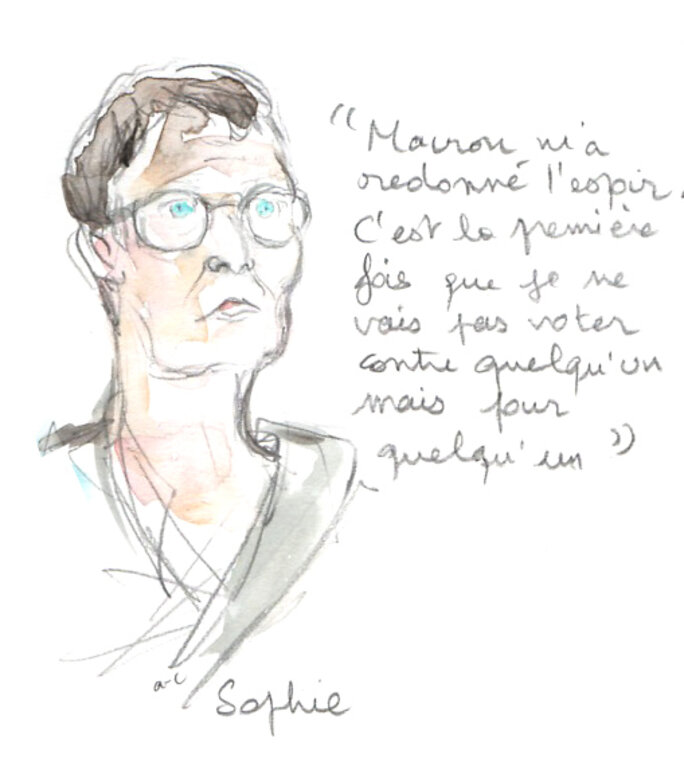 "Macron m'a
redonné l'espoir.
C'est la première
fois que je ne
vais pas voter
contre quelqu'un
mais pour
quelqu'un"
a-c
Sophie